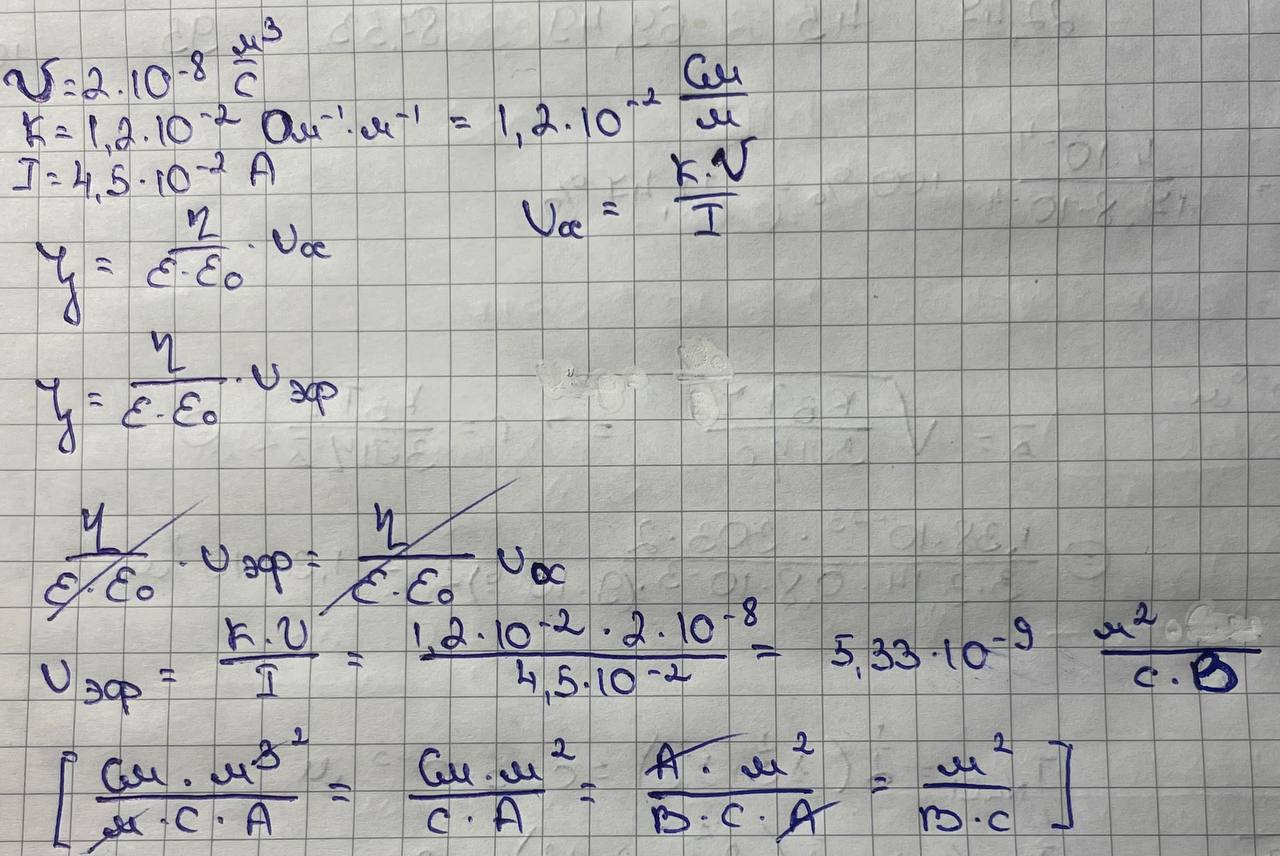 υ = 2·10⁻⁸ м³/с
K = 1,2·10⁻² Ом⁻¹·м⁻¹ = 1,2·10⁻² См/м
I = 4,5·10⁻² А
U_ос = K·υ/I
ζ = η/(ε·ε₀) · U_ос
ζ = η/(ε·ε₀) · U_эф
η/(ε·ε₀) · U_эф = η/(ε·ε₀) U_ос
U_эф = K·υ/I = (1,2·10⁻² · 2·10⁻⁸)/(4,5·10⁻²) = 5,33·10⁻⁹ м²/(с·В)
[(См·м³ ²)/(м·с·А) = (См·м²)/(с·А) = (А·м²)/(В·с·А) = м²/(В·с)]